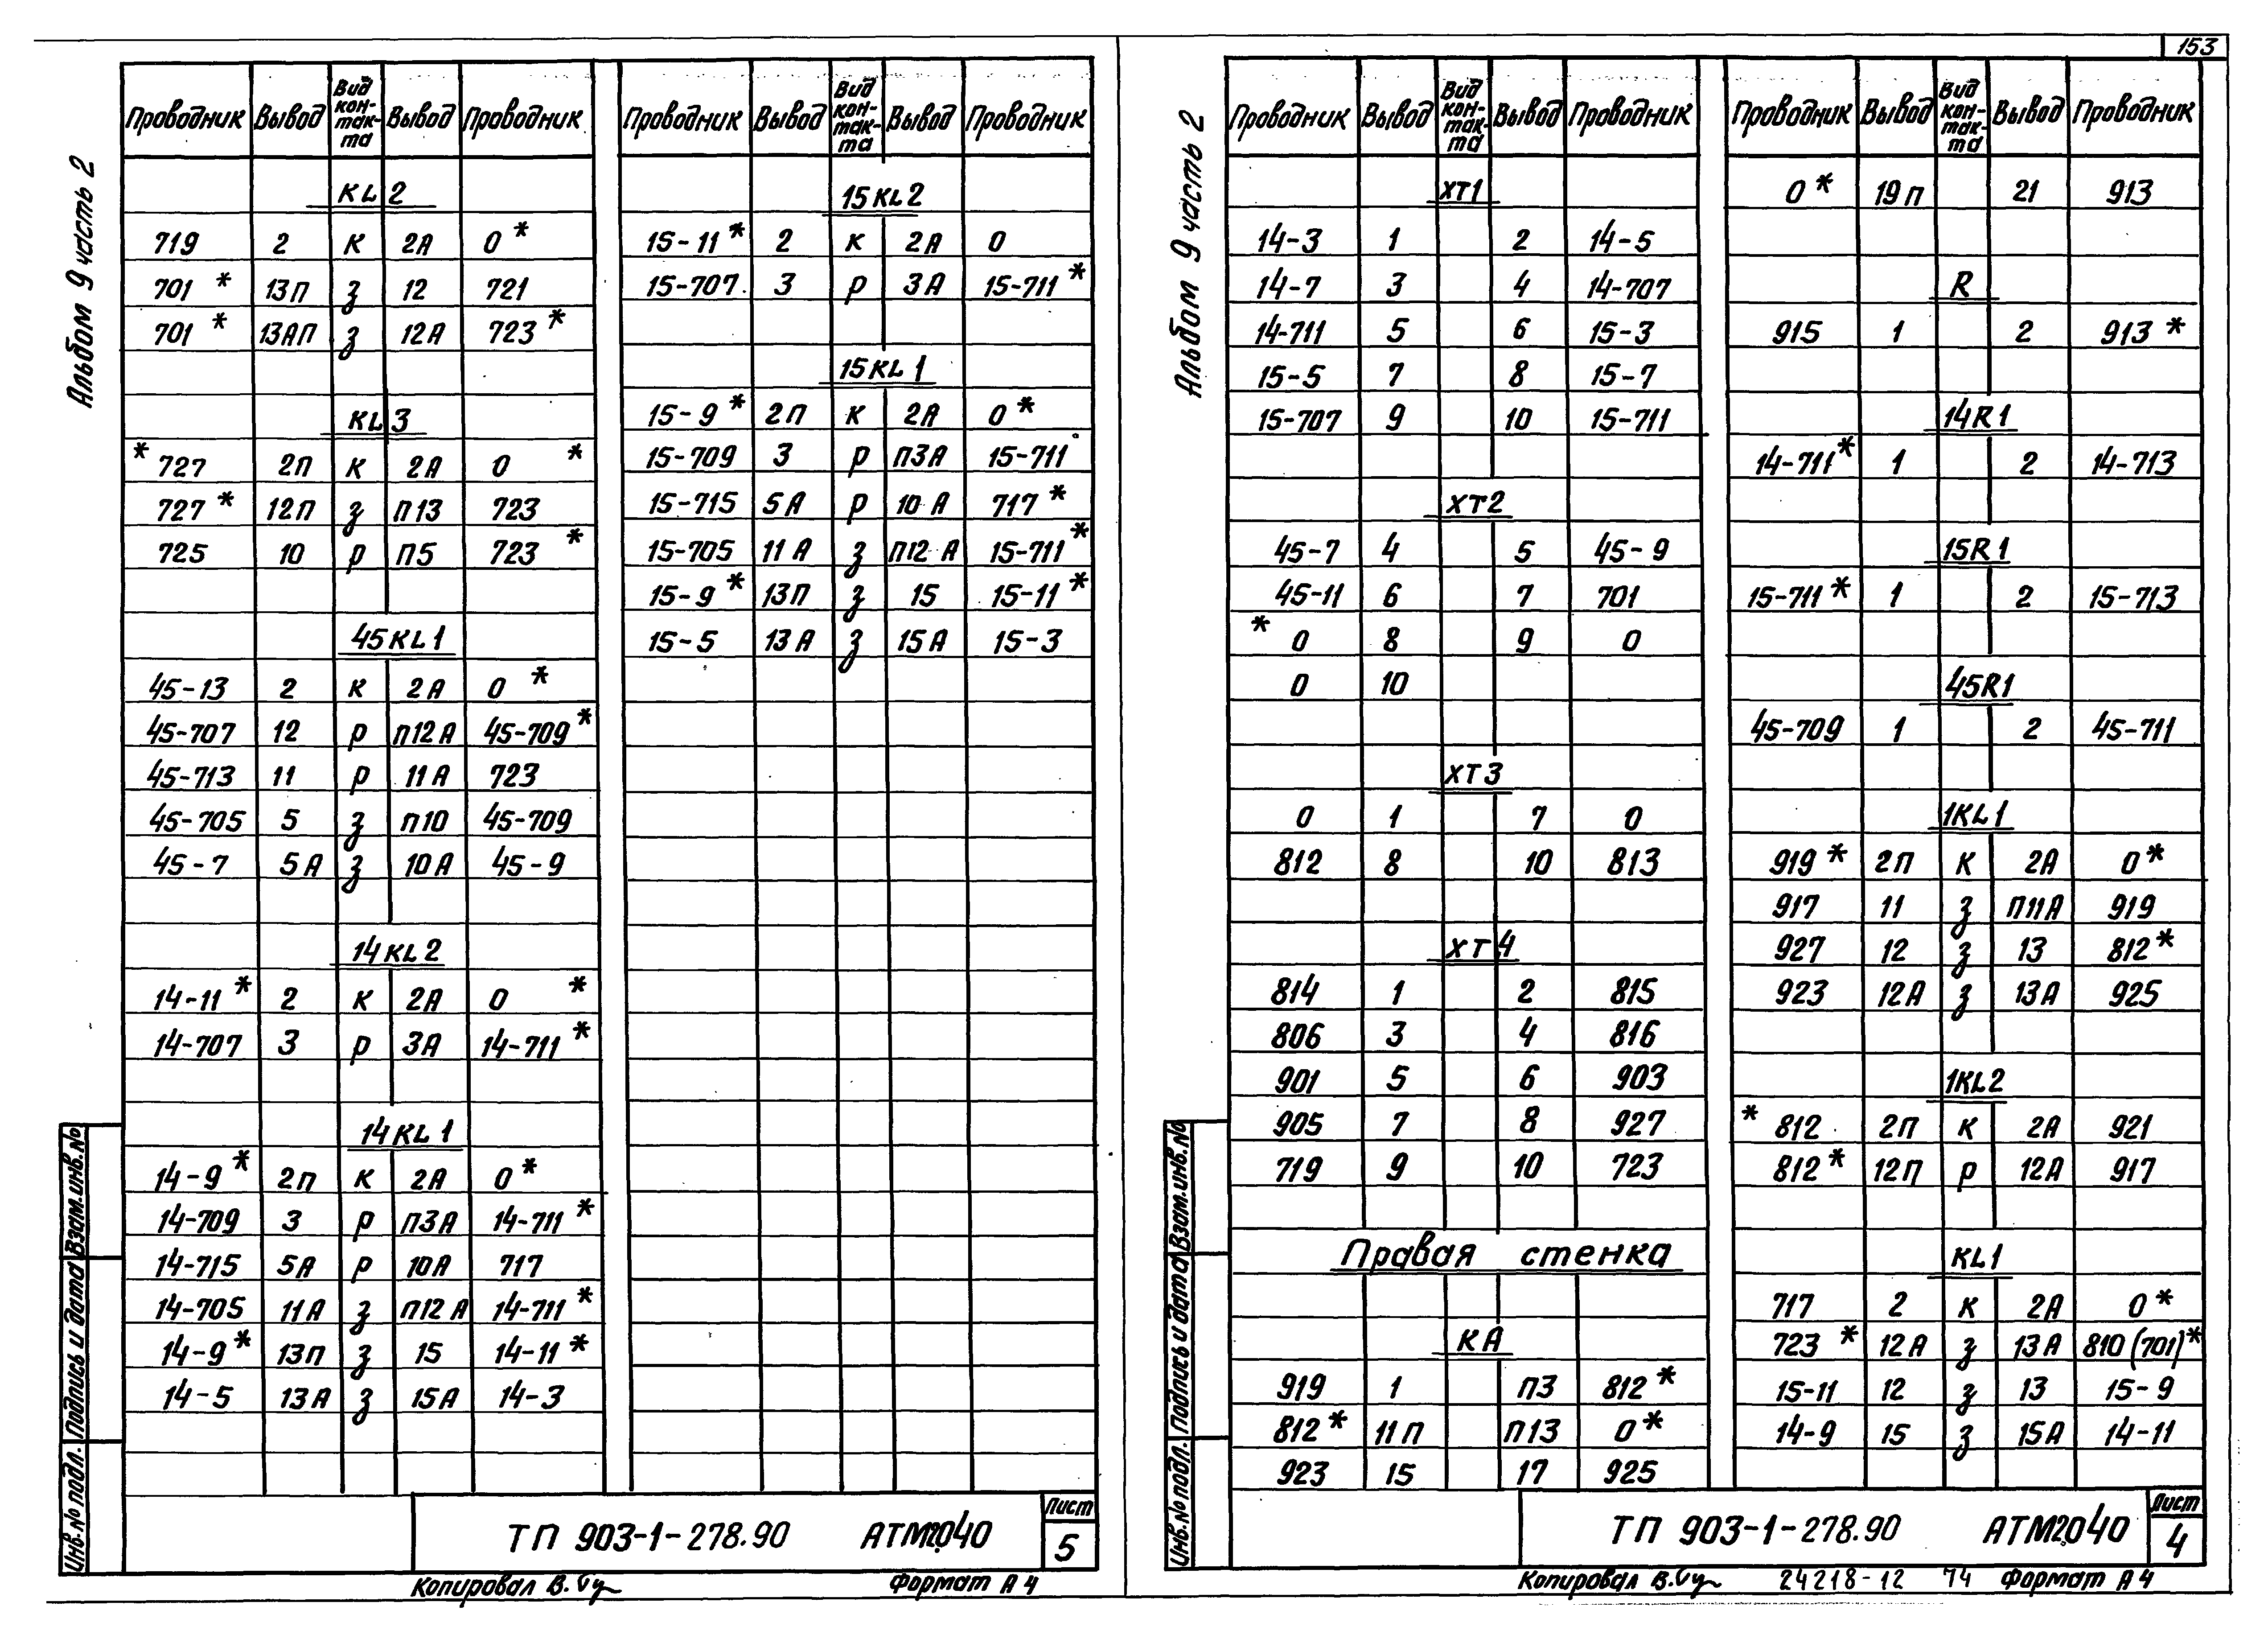 153
Альбом 9 часть 2
Проводник Вывод Вид кон-так-та Вывод Проводник
KL2
719 2 к 2А 0*
701* 13П з 12 721
701* 13АП з 12А 723*
KL3
*727 2П к 2А 0*
727* 12П з П13 723
725 10 р П5 723*
45KL1
45-13 2 к 2А 0*
45-707 12 р П12А 45-709*
45-713 11 р 11А 723
45-705 5 з П10 45-709
45-7 5А з 10А 45-9
14KL2
14-11* 2 к 2А 0*
14-707 3 р 3А 14-711*
14KL1
14-9* 2П к 2А 0*
14-709 3 р П3А 14-711*
14-715 5А р 10А 717
14-705 11А з П12А 14-711*
14-9* 13П з 15 14-11*
14-5 13А з 15А 14-3
Проводник Вывод Вид кон-так-та Вывод Проводник
15KL2
15-11* 2 к 2А 0
15-707 3 р 3А 15-711*
15KL1
15-9* 2П к 2А 0*
15-709 3 р П3А 15-711
15-715 5А р 10А 717*
15-705 11А з П12А 15-711*
15-9* 13П з 15 15-11*
15-5 13А з 15А 15-3
Инв.№ подл. Подпись и дата Взам.инв.№
ТП 903-1-278.90 АТМ2.040
Лист
5
Копировал В.
Формат А4
Альбом 9 часть 2
Проводник Вывод Вид кон-так-та Вывод Проводник
ХТ1
14-3 1 2 14-5
14-7 3 4 14-707
14-711 5 6 15-3
15-5 7 8 15-7
15-707 9 10 15-711
ХТ2
45-7 4 5 45-9
45-11 6 7 701
*0 8 9 0
0 10
ХТ3
0 1 7 0
812 8 10 813
ХТ4
814 1 2 815
806 3 4 816
901 5 6 903
905 7 8 927
719 9 10 723
Правая стенка
КА
919 1 П3 812*
812* 11П П13 0*
923 15 17 925
Проводник Вывод Вид кон-так-та Вывод Проводник
0* 19П 21 913
R
915 1 2 913*
14R1
14-711* 1 2 14-713
15R1
15-711* 1 2 15-713
45R1
45-709 1 2 45-711
1KL1
919* 2П к 2А 0*
917 11 з П11А 919
927 12 з 13 812*
923 12А з 13А 925
1KL2
*812 2П к 2А 921
812* 12П р 12А 917
KL1
717 2 к 2А 0*
723* 12А з 13А 810(701)*
15-11 12 з 13 15-9
14-9 15 з 15А 14-11
Инв.№ подл. Подпись и дата Взам.инв.№
ТП 903-1-278.90 АТМ2.040
Лист
4
Копировал В.
24218-12 74 Формат А4